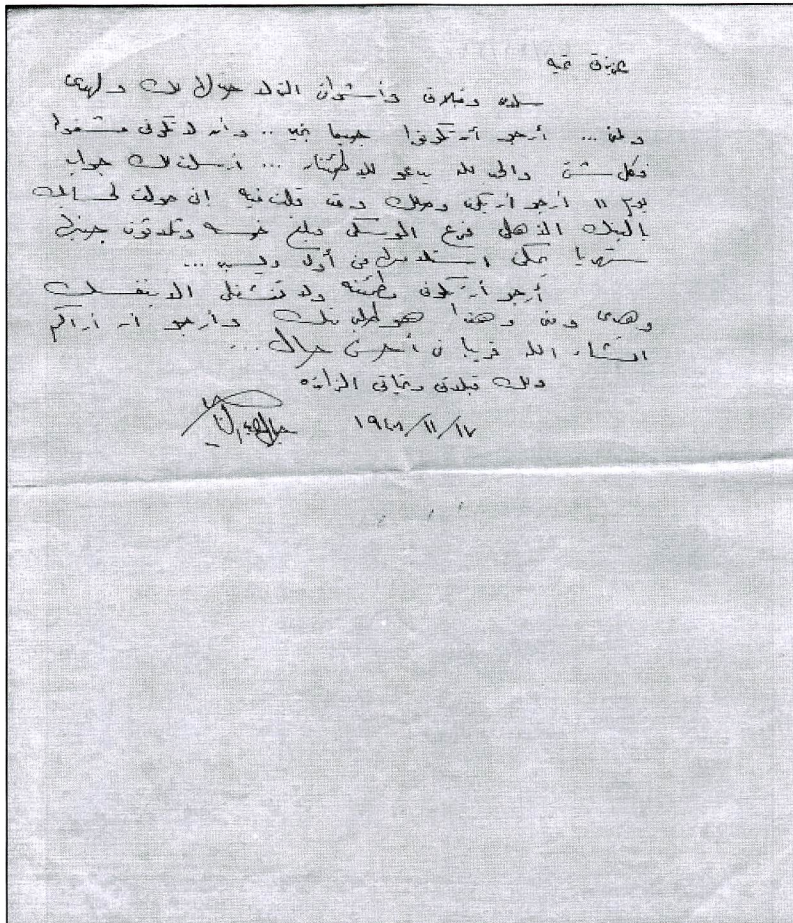 عزيزتى تحيه
سلامى وقبلاتى وأشواقى التى لا حد لها لك ولهدى
ومنى ... أرجو أن تكونوا جميعا بخير .. وأن لا تكونى مشغوله
فكل شئ والحمد لله يدعو للاطمئنان ... أرسلت لك جواب
يوم ١١ أرجو أن يكون وصلك وقد قلت فيه انى حولت لحسابك
بالبنك الأهلى فرع الموسكى مبلغ خمسه وثلاثون جنيها
شهريا يمكن استلامها من أول ديسمبر ...
أرجو أن تكونى مطمئنه ولا تنشغلى الا بنفسك
وهدى ومنى وهذا هو طلبى منك وأرجو أن أراكم
انشاء الله قريبا فى أحسن حال ...
ولك قبلاتى وتحياتى الزائده
جمال عبد الناصر
١٩٤٨/١١/١٧